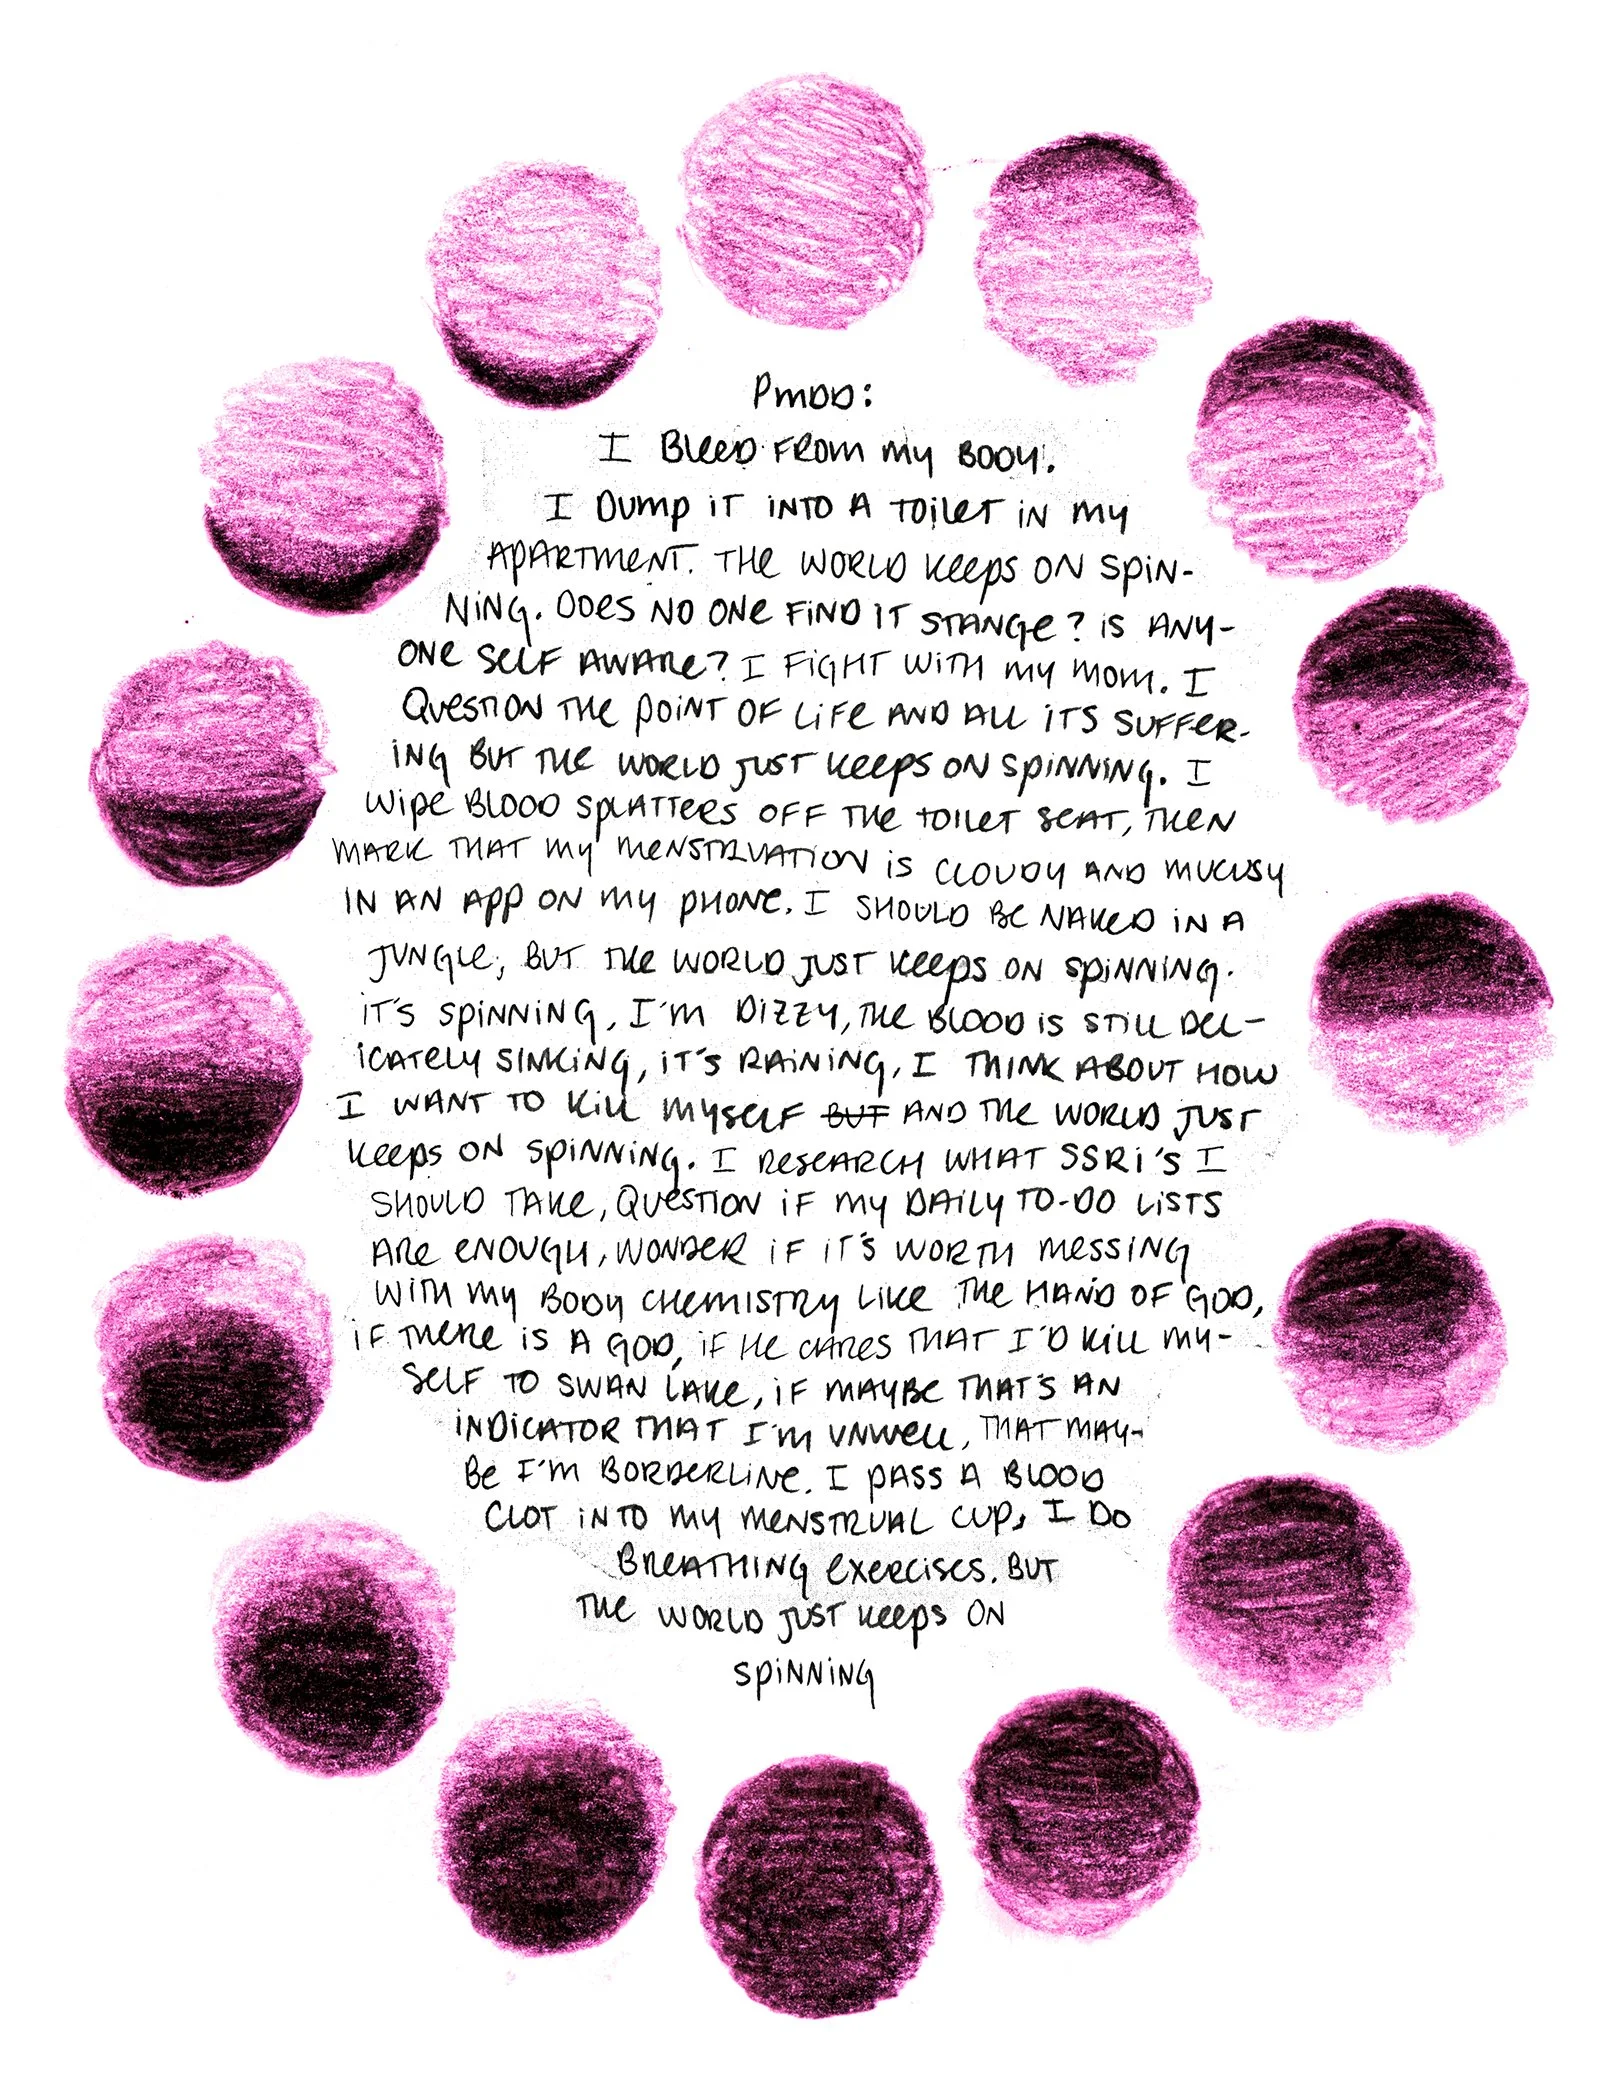 PMDD:
I BLEED FROM MY BODY.
I DUMP IT INTO A TOILET IN MY
APARTMENT. THE WORLD KEEPS ON SPIN-
NING. DOES NO ONE FIND IT STANGE? IS ANY-
ONE SELF AWARE? I FIGHT WITH MY MOM. I
QUESTION THE POINT OF LIFE AND ALL ITS SUFFER-
ING BUT THE WORLD JUST KEEPS ON SPINNING. I
WIPE BLOOD SPLATTERS OFF THE TOILET SEAT, THEN
MARK THAT MY MENSTRUATION IS CLOUDY AND MUCUSY
IN AN APP ON MY PHONE. I SHOULD BE NAKED IN A
JUNGLE, BUT THE WORLD JUST KEEPS ON SPINNING.
IT'S SPINNING, I'M DIZZY, THE BLOOD IS STILL DEL-
ICATELY SINKING, IT'S RAINING, I THINK ABOUT HOW
I WANT TO KILL MYSELF BUT AND THE WORLD JUST
KEEPS ON SPINNING. I RESEARCH WHAT SSRI'S I
SHOULD TAKE, QUESTION IF MY DAILY TO-DO LISTS
ARE ENOUGH, WONDER IF IT'S WORTH MESSING
WITH MY BODY CHEMISTRY LIKE THE HAND OF GOD,
IF THERE IS A GOD, IF HE CARES THAT I'D KILL MY-
SELF TO SWAN LAKE, IF MAYBE THAT'S AN
INDICATOR THAT I'M UNWELL, THAT MAY-
BE I'M BORDERLINE. I PASS A BLOOD
CLOT INTO MY MENSTRUAL CUP, I DO
BREATHING EXERCISES. BUT
THE WORLD JUST KEEPS ON
SPINNING